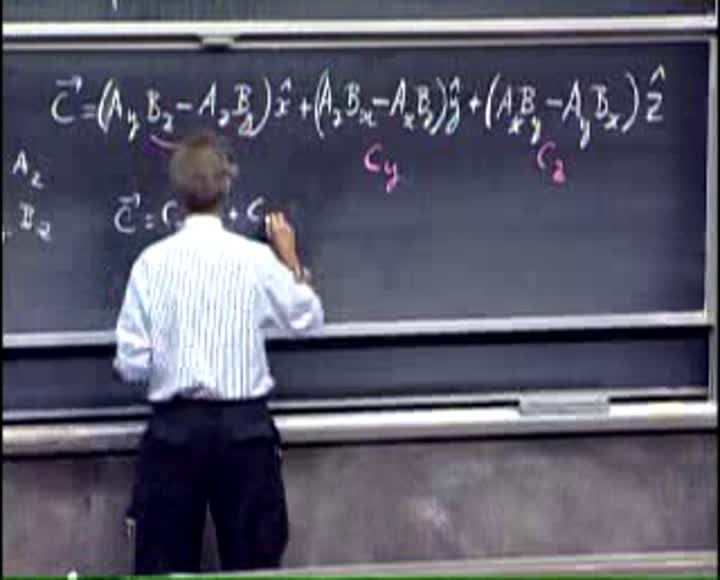 C⃗ = (A_y B_z − A_z B_y) x̂ + (A_z B_x − A_x B_z) ŷ + (A_x B_y − A_y B_x) ẑ
C_y C_z
A_z
, B_z
C⃗ = C + C